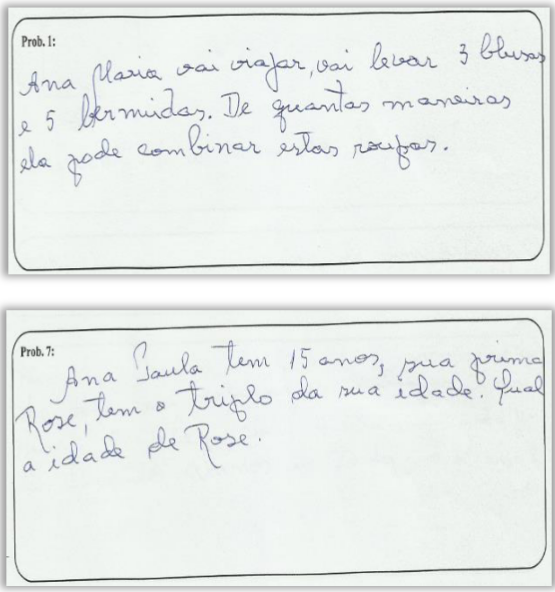 Prob. 1:
Ana Maria vai viajar, vai levar 3 blusas
e 5 bermudas. De quantas maneiras
ela pode combinar estas roupas.
Prob. 7:
Ana Paula tem 15 anos, sua prima
Rose, tem o triplo da sua idade. Qual
a idade de Rose.